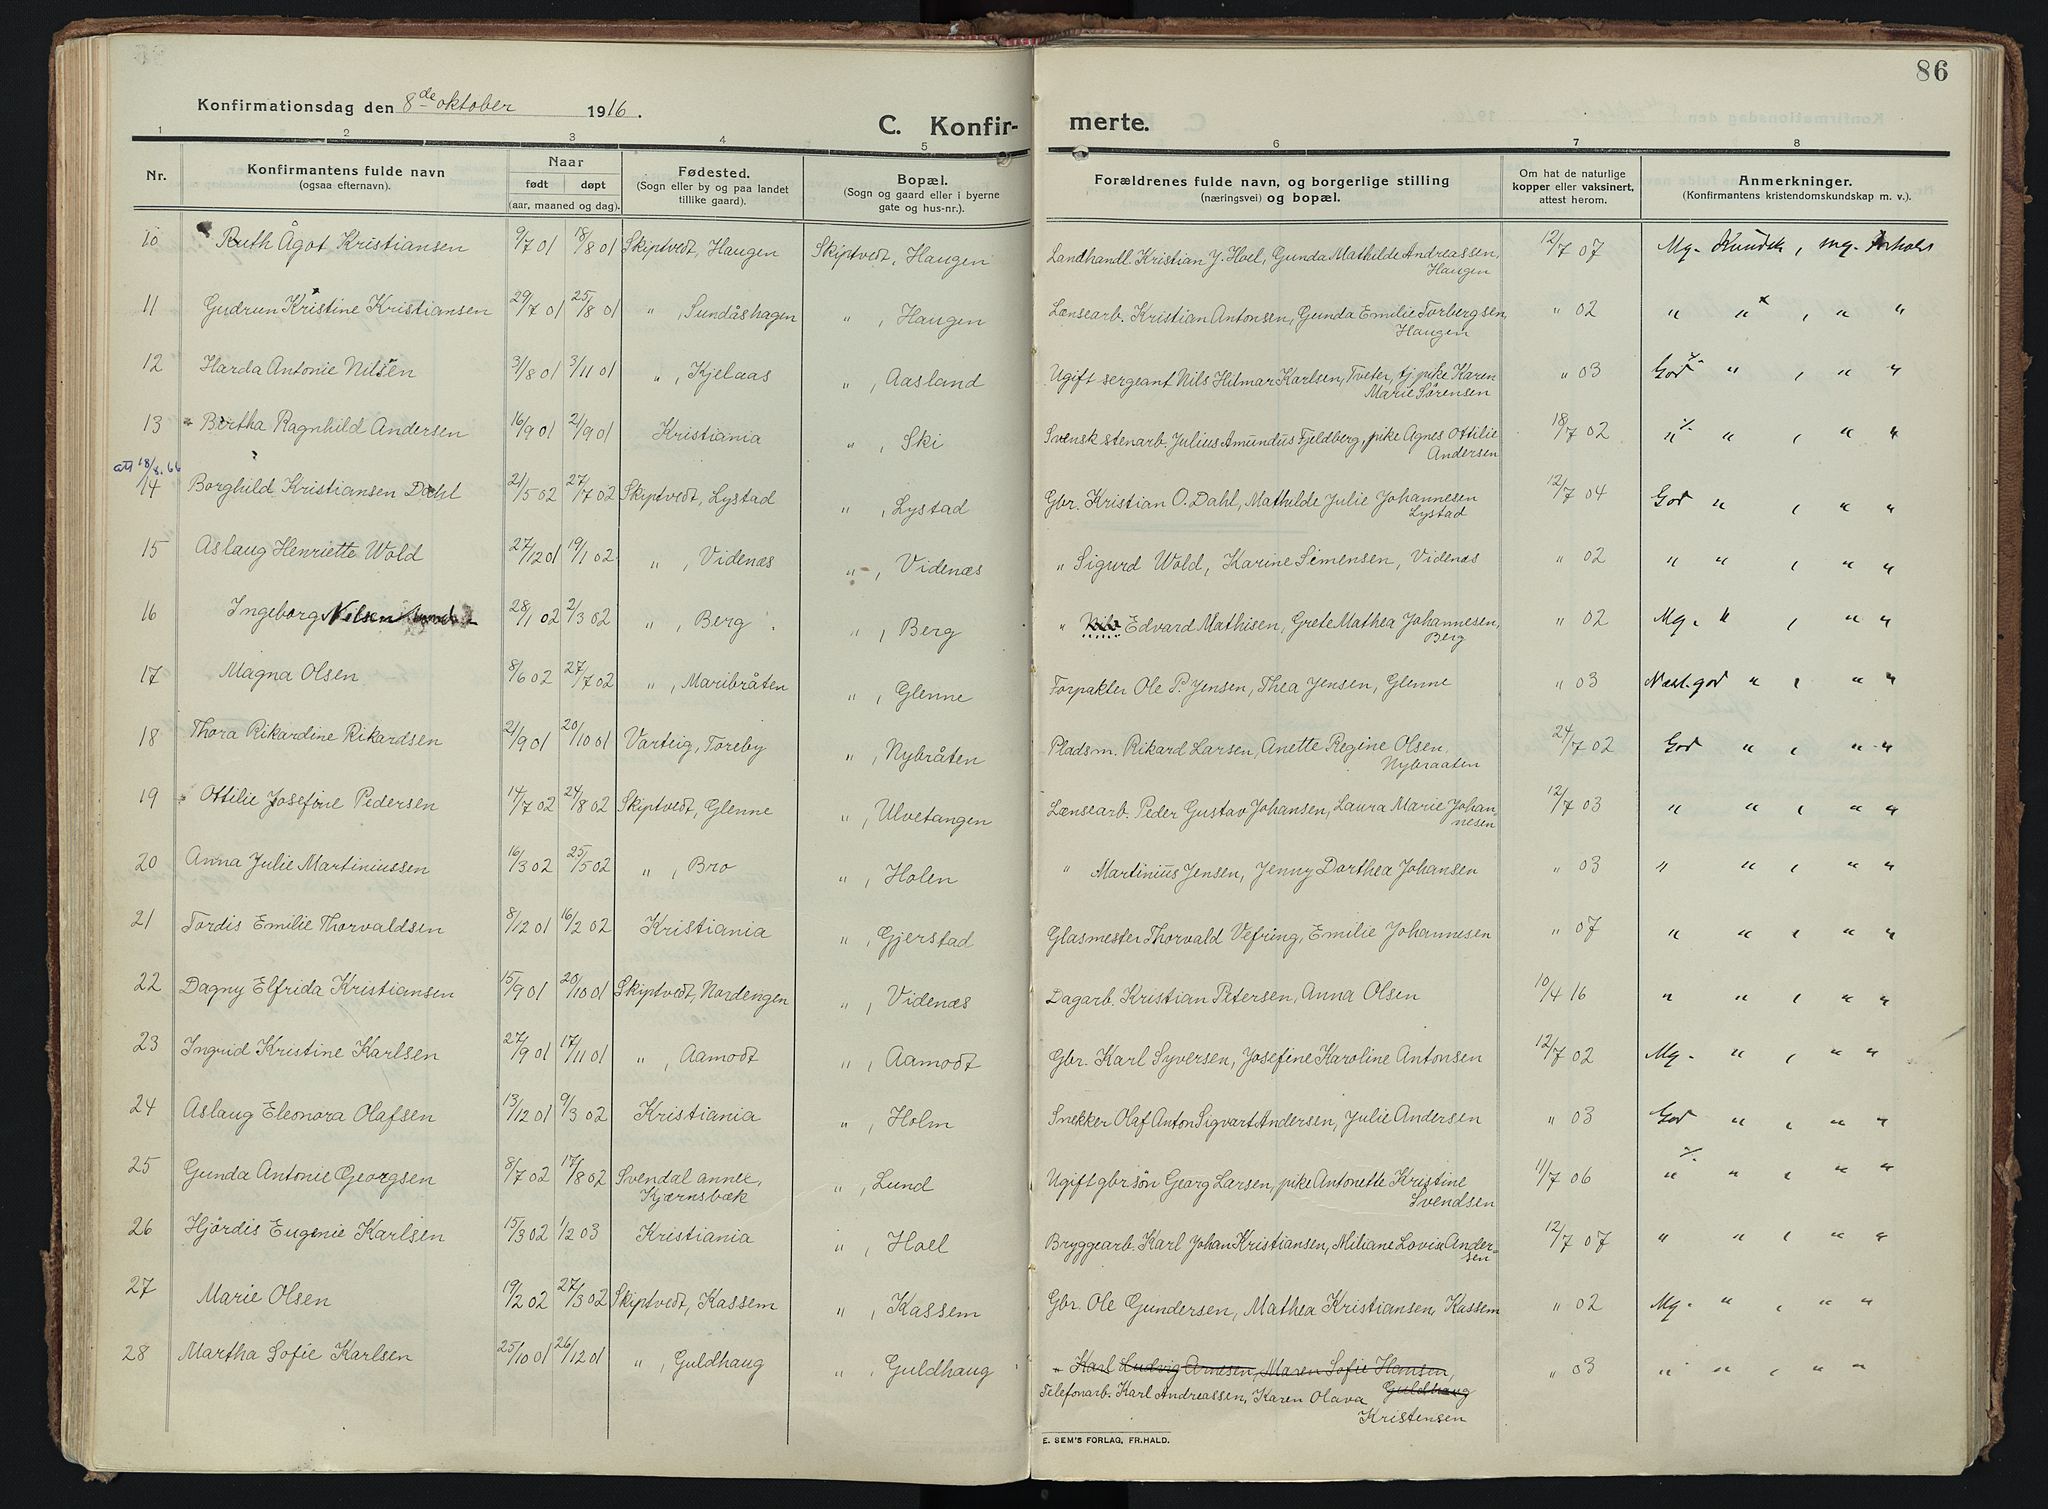 86
Konfirmationsdag den 8de oktober 1916.
C. Konfirmerte.
1 2 3 4 5 6 7 8
Nr.
Konfirmantens fulde navn
(ogsaa efternavn).
Naar
født døpt
(aar, maaned og dag).
Fødested.
(Sogn eller by og paa landet
tillike gaard).
Bopæl.
(Sogn og gaard eller i byerne
gate og hus-nr.).
Forældrenes fulde navn, og borgerlige stilling
(næringsvei) og bopæl.
Om hat de naturlige
kopper eller vaksinert,
attest herom.
Anmerkninger.
(Konfirmantens kristendomskundskap m. v.).
10 Ruth Ågot Kristiansen 9/7 01 18/8 01 Skiptvedt, Haugen Skiptvedt, Haugen Landhandl. Kristian J. Hoel, Gunda Mathilde Andreassen, 12/7 07 Mg. Kundsk, mg. forhold
Haugen
11 Gudrun Kristine Kristiansen 29/7 01 25/8 01 ", Sundåshagen ", Haugen Lænsearb. Kristian Antonsen, Gunda Emilie Torbergsen, " 02 " " , " "
Haugen
12 Harda Antonie Nilsen 3/8 01 3/11 01 ", Kjelaas ", Aasland Ugift sergeant Nils Hilmar Karlsen, Tveter, tj. pike Karen " 03 God " , " "
Marie Sørensen
13 Bertha Ragnhild Andersen 16/9 01 2/9 01 Kristiania ", Ski Svensk stenarb. Julius Amundus Fjeldberg, pike Agnes Ottilie 18/7 02 " " , " "
Andersen
att 18/8. 66
14 Borghild Kristiansen Dahl 21/5 02 27/7 02 Skiptvedt, Lystad ", Lystad Gbr. Kristian O. Dahl, Mathilde Julie Johannesen 12/7 04 God " , " "
Lystad
15 Aslaug Henriette Wold 27/12 01 19/1 02 ", Videnæs ", Videnæs " Sigurd Wold, Karine Simensen, Videnæs " 02 " " , " "
16 Ingeborg Nilsen 28/1 02 2/3 02 ", Berg ", Berg " Edvard Mathisen, Grete Mathea Johannesen, " 02 Mg. " , " "
Berg
17 Magna Olsen 8/6 02 27/7 02 ", Maribråten ", Glenne Forpakter Ole P. Jensen, Thea Jensen, Glenne " 03 Næst. god " , " "
18 Thora Rikardine Rikardsen 21/9 01 20/10 01 Varteig, Toreby ", Nybråten Pladsm. Rikard Larsen, Anette Regine Olsen, 24/7 02 God " , " "
Nybraaten
19 Ottilie Josefine Pedersen 14/7 02 24/8 02 Skiptvedt, Glenne ", Ulvetangen Lænsearb. Peder Gustav Johansen, Laura Marie Johan- 12/7 03 " " , " "
nesen
20 Anna Julie Martiniussen 16/3 02 25/5 02 ", Bro ", Holen " Martinius Jensen, Jenny Dorthea Johansen " 03 " " , " "
21 Tordis Emilie Thorvaldsen 8/12 01 16/2 02 Kristiania ", Gjerstad Glasmester Thorvald Vefring, Emilie Johannesen " 07 " " , " "
22 Dagny Elfrida Kristiansen 15/9 01 20/10 01 Skiptvedt, Nordengen ", Videnæs Dagarb. Kristian Petersen, Anna Olsen 10/4 16 " " , " "
23 Ingrid Kristine Karlsen 27/9 01 17/11 01 ", Aamodt ", Aamodt Gbr. Karl Syversen, Josefine Karoline Antonsen 12/7 02 Mg. " , " "
24 Aslaug Eleonora Olafsen 13/12 01 9/3 02 Kristiania ", Holm Snekker Olaf Anton Sigvart Andersen, Julie Andersen " 03 God " , " "
25 Gunda Antonie Georgsen 8/7 02 17/8 02 Svendal annex, ", Lund Ugift gbrsøn Georg Larsen, pike Antonette Kristine 11/7 06 " " , " "
Kjærnsbæk Svendsen
26 Hjördis Eugenie Karlsen 15/3 02 1/2 03 Kristiania ", Hoel Bryggearb. Karl Johan Kristiansen, Miliane Lovise Ander- 12/7 07 " " , " "
sen
27 Marie Olsen 19/2 02 27/3 02 Skiptvedt, Kassem ", Kassem Gbr. Ole Gundersen, Mathea Kristiansen, Kassem " 02 Mg. " , " "
28 Martha Sofie Karlsen 25/10 01 26/12 01 ", Guldhaug ", Guldhaug " Karl Ludvig Arnesen, Maren Sofie Hansen, " 03 " " , " "
Guldhaug
Telefonarb. Karl Andreassen, Karen Olava
Kristensen
E. SEM'S FORLAG, FR.HALD.